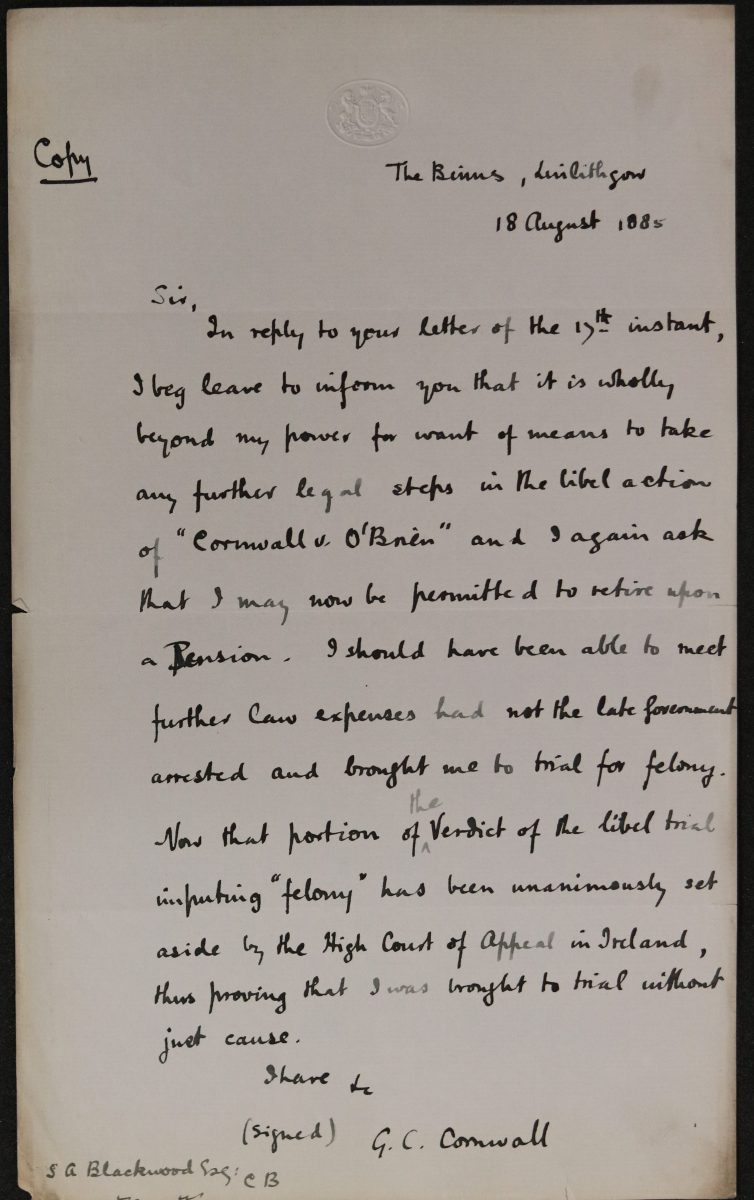 Copy
The Binns, Linlithgow
18 August 1885
Sir,
In reply to your letter of the 17th instant,
I beg leave to inform you that it is wholly
beyond my power for want of means to take
any further legal steps in the libel action
of "Cornwall v. O'Brien" and I again ask
that I may now be permitted to retire upon
a Pension. I should have been able to meet
further Law expenses had not the late Government
arrested and brought me to trial for felony.
Now that portion of the Verdict of the libel trial
imputing "felony" has been unanimously set
aside by the High Court of Appeal in Ireland,
thus proving that I was brought to trial without
just cause.
I have &c
(signed) G. C. Cornwall
S A Blackwood Esq: C B